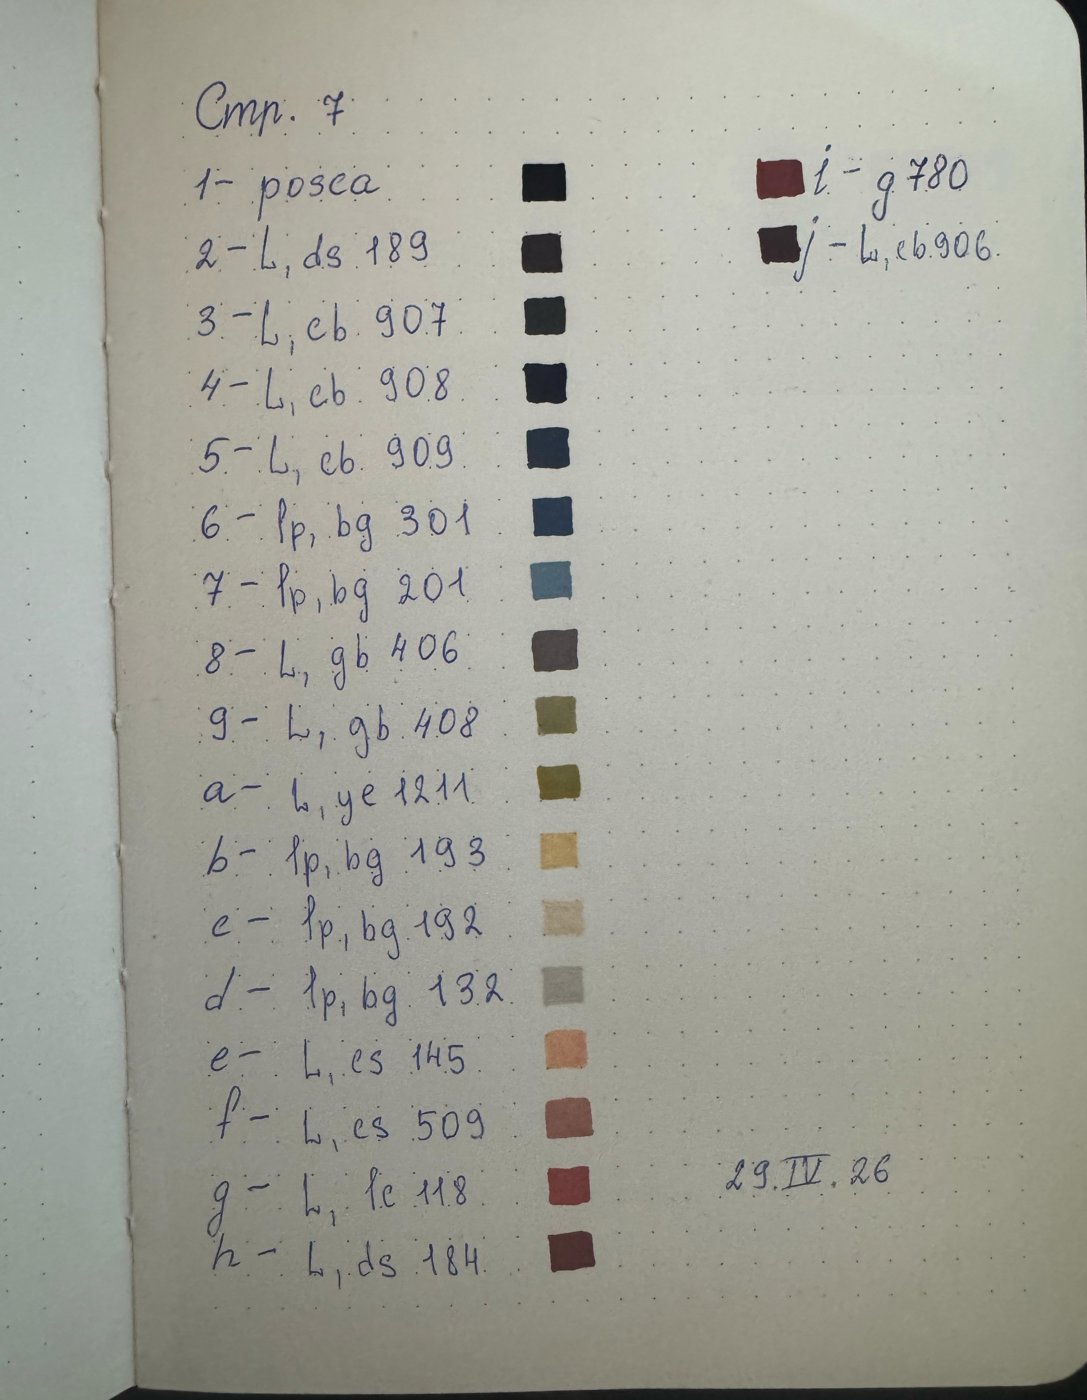 Стр. 7
1- posca
2- L, ds 189
3- L, cb 907
4- L, cb 908
5- L, cb 909
6- lp, bg 301
7- lp, bg 201
8- L, gb 406
9- L, gb 408
a- L, ye 1211
b- lp, bg 193
c- lp, bg 192
d- lp, bg 132
e- L, cs 145
f- L, cs 509
g- L, lc 118
h- L, ds 184
i- g 780
j- L, cb 906
29.IV.26